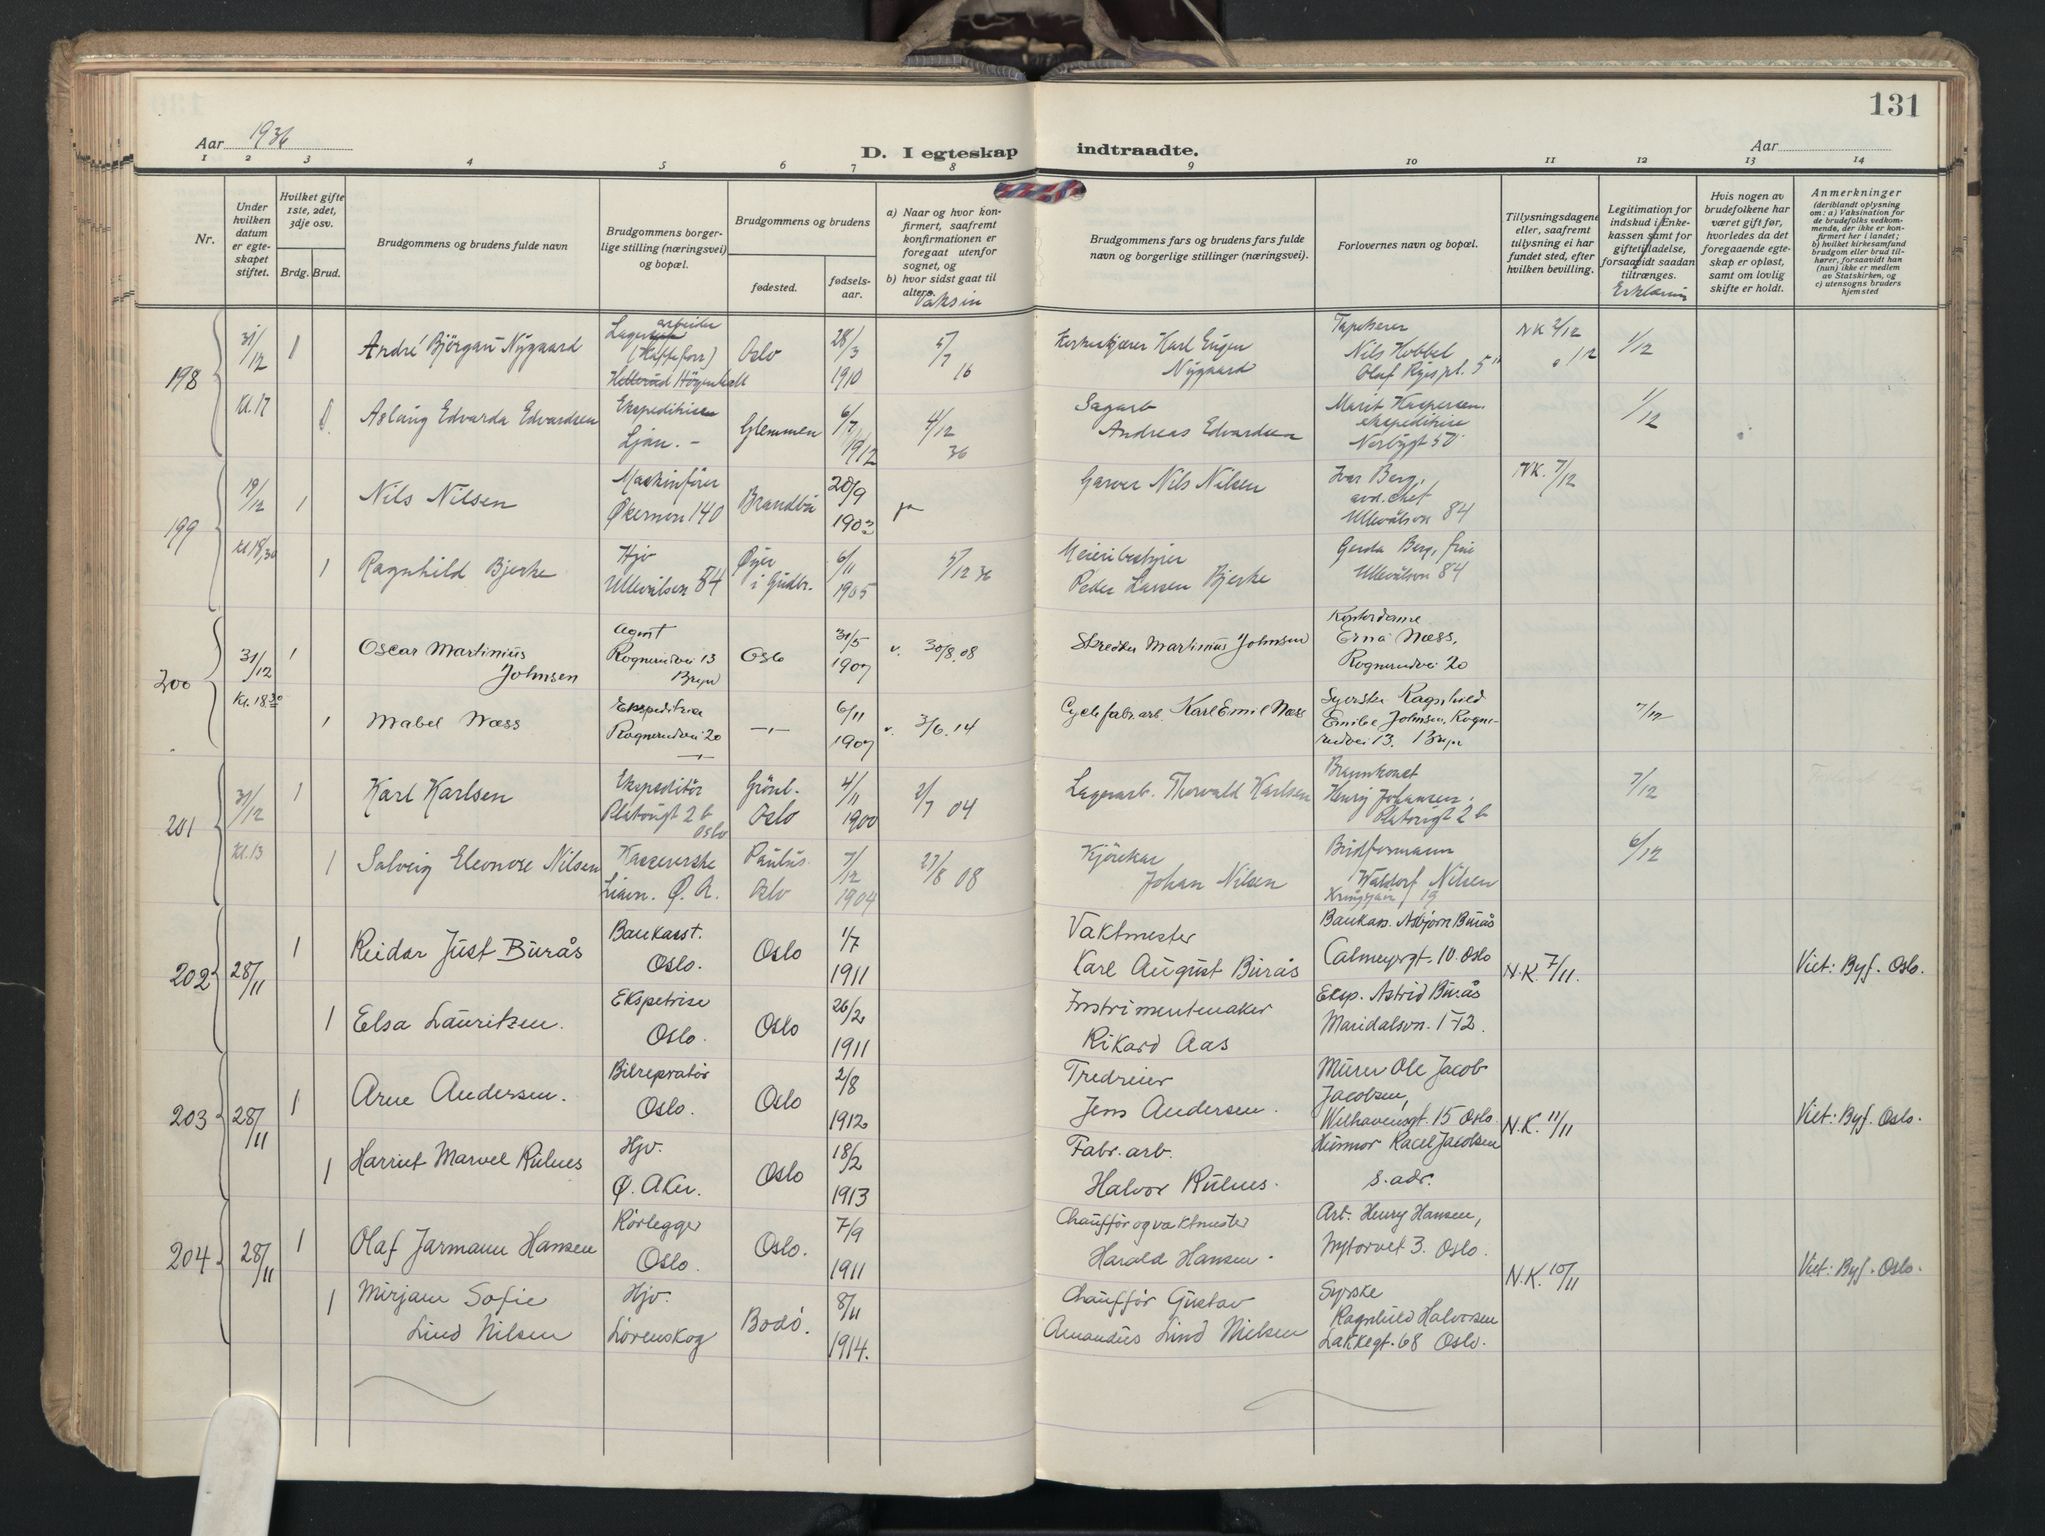 131
Aar 1936
D. I egteskap indtraadte.
Aar
1 2 3 4 5 6 7 8 9 10 11 12 13 14
Nr.
Under hvilken datum er egteskapet stiftet.
Hvilket gifte 1ste, 2det, 3dje osv.
Brdg. Brud.
Brudgommens og brudens fulde navn
Brudgommens borgerlige stilling (næringsvei) og bopæl.
Brudgommens og brudens
fødested.
fødselsaar.
a) Naar og hvor konfirmert, saafremt konfirmationen er foregaat utenfor sognet, og
b) hvor sidst gaat til alters.
Vaksin
Brudgommens fars og brudens fars fulde navn og borgerlige stillinger (næringsvei).
Forlovernes navn og bopæl.
Tillysningsdagene eller, saafremt tillysning ei har fundet sted, efter hvilken bevilling.
Legitimation for indskud i Enkekassen samt for giftetilladelse, forsaavidt saadan tiltrænges.
Erklæring
Hvis nogen av brudefolkene har været gift før, hvorledes da det foregaaende egteskap er opløst, samt om lovlig skifte er holdt.
Anmerkninger
(deriblandt oplysning om: a) Vaksination for de brudefolks vedkommende, der ikke er konfirmert her i landet; b) hvilket kirkesamfund brudgom eller brud tilhører, forsaavidt han (hun) ikke er medlem av Statskirken, og c) utensogns bruders hjemsted
198 31/12 1 André Bjørgan Nygaard Lagerarbeider Oslo 28/3 1910 5/7 16 Karl Eugen Nygaard Tapetserer Nils Hobbel Olaf Ryes pl. 5 NK 2/12 1/12
Kl. 17 Aslaug Edvarda Edvardsen Ekspeditrise Ljan. Glemmen 6/7 1912 4/12 36 Sagarb Andreas Edvardsen Marit Kaspersen ekspeditrise 1/12
199 19/12 1 Nils Nilsen Maskinfører Økernvn 140 Brandbu 20/9 1903 ja Garver Nils Nilsen Ivar Berg, avd. chef Ullevålsvn 84 NK. 7/12
Kl 18/30 1 Ragnhild Bjerke Hjv Ullevålsvn 84 Øyer i Gudbr. 6/11 1905 5/12 36 Meieribestyrer Peder Larsen Bjerke Gerda Berg, frue Ullevålsvn 84
200 31/12 1 Oscar Martinius Johnsen Agent Rognerudvei 13 Bryn Oslo 31/5 1907 v. 30/8.08 Skredder Martinius Johnsen Kontordame Erna Næss, Rognerudvei 20
Kl. 18 30 1 Mabel Næss Ekspeditrise Rognerudvei 20 —"— 6/11 1907 v. 3/6.14 Cyclefabr.arb. Karl Emil Næss Syerske Ragnhild Emilie Johnsen, Rognerudvei 13. Bryn 7/12
201 31/12 1 Karl Karlsen Ekspeditør Platougt 2 b Oslo Grønl. Oslo 4/11 1900 2/7 04 Lagerarb. Thorvald Karlsen Brannkonst Henry Johansen. Platougt 2 b 7/12
Kl. 13 1 Solveig Eleonore Nilsen Kassererske Ljan. Ø. A. Paulus Oslo 7/12 1904 27/8 08 Kjørekar Johan Nilsen Budformann Waldorf Nilsen 19 6/12
202 28/11 1 Reidar Just Burås Bankasst. Oslo. Oslo 1/7 1911 Vaktmester Karl August Burås Bankass. Asbjørn Burås Calmeyrgt. 10. Oslo N.K. 7/11. Viet: Byf. Oslo.
1 Elsa Lauritzen. Ekspetrise Oslo. Oslo 26/2 1911 Instrimentmaker Rikard Aas Eksp. Astrid Burås Maridalsvn. 172.
203 28/11 1 Arne Andersen. Bilrepratør Oslo. Oslo 2/8 1912 Tredreier Jens Andersen. Murer Ole Jacob Jacobsen, Welhavensgt. 15 Oslo. N.K. 11/11 Viet: Byf. Oslo.
1 Harriet Marvel Rulnes Hjv. Ø. Aker. Oslo 18/2 1913 Fabr. arb. Halvor Rulnes. Husmor Racel Jacobsen s. adr.
204 28/11 1 Olaf Jarmann Hansen Rørlegger Oslo. Oslo. 7/9 1911 Chauffør og vaktmester Harald Hansen. Arb. Henry Hansen, Nytorvet 3. Oslo. N.K. 10/11 Viet: Byf. Oslo.
1 Mirjam Sofie Lind Nilsen Hjv. Lørenskog Bodø. 8/11 1914. Chauffør Gustav Amandus Lind Nielsen Syrske Ragnhild Halvorsen Lakkegt. 68 Oslo.